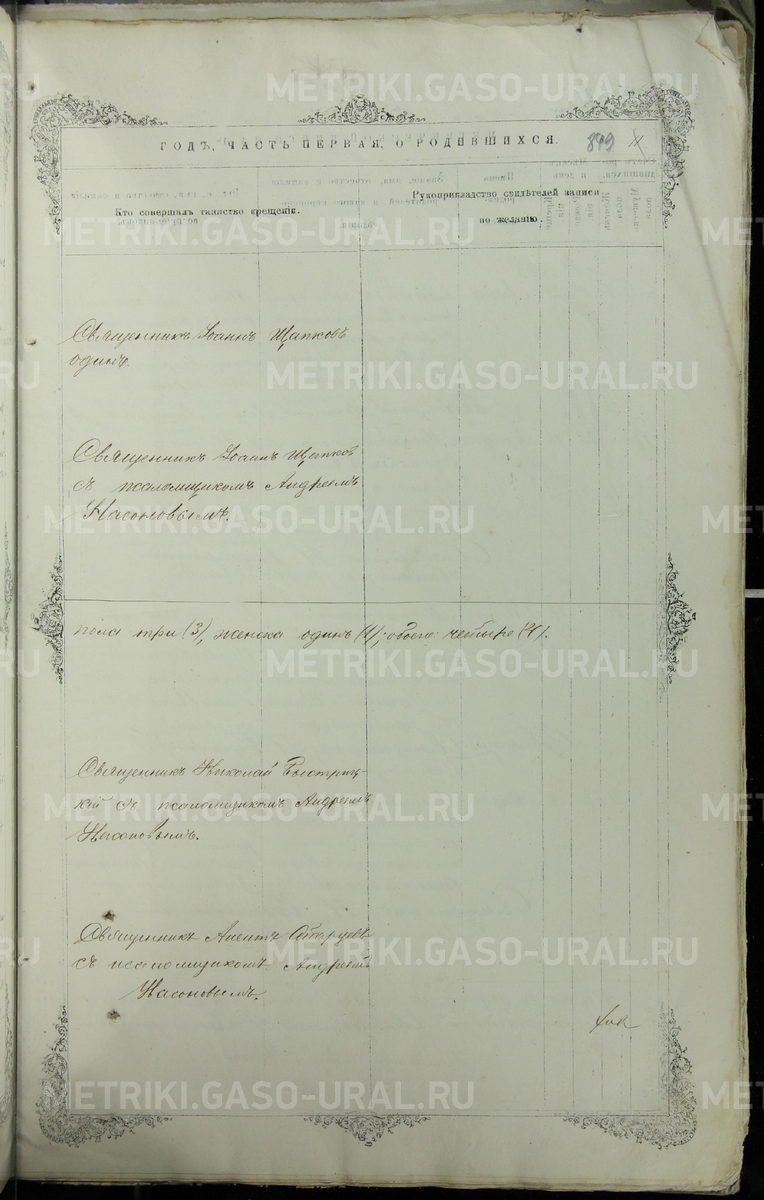 ГОДЪ, ЧАСТЬ ПЕРВАЯ, О РОДИВШИХСЯ.
849
Кто совершалъ таинство крещенія.
Рукоприкладство свидѣтелей записи
по желанію.
Священникъ Іоаннъ Щапковъ
одинъ.
Священникъ Іоаннъ Щапковъ
съ псаломщикомъ Андреемъ
Насоновымъ.
пола три (3), женска одинъ (1), обоего четыре (4).
Священникъ Николай Быстриц-
кій съ псаломщикомъ Андреемъ
Насоновымъ.
Священникъ
съ псаломщикомъ Андреемъ
Насоновымъ.
METRIKI.GASO-URAL.RU